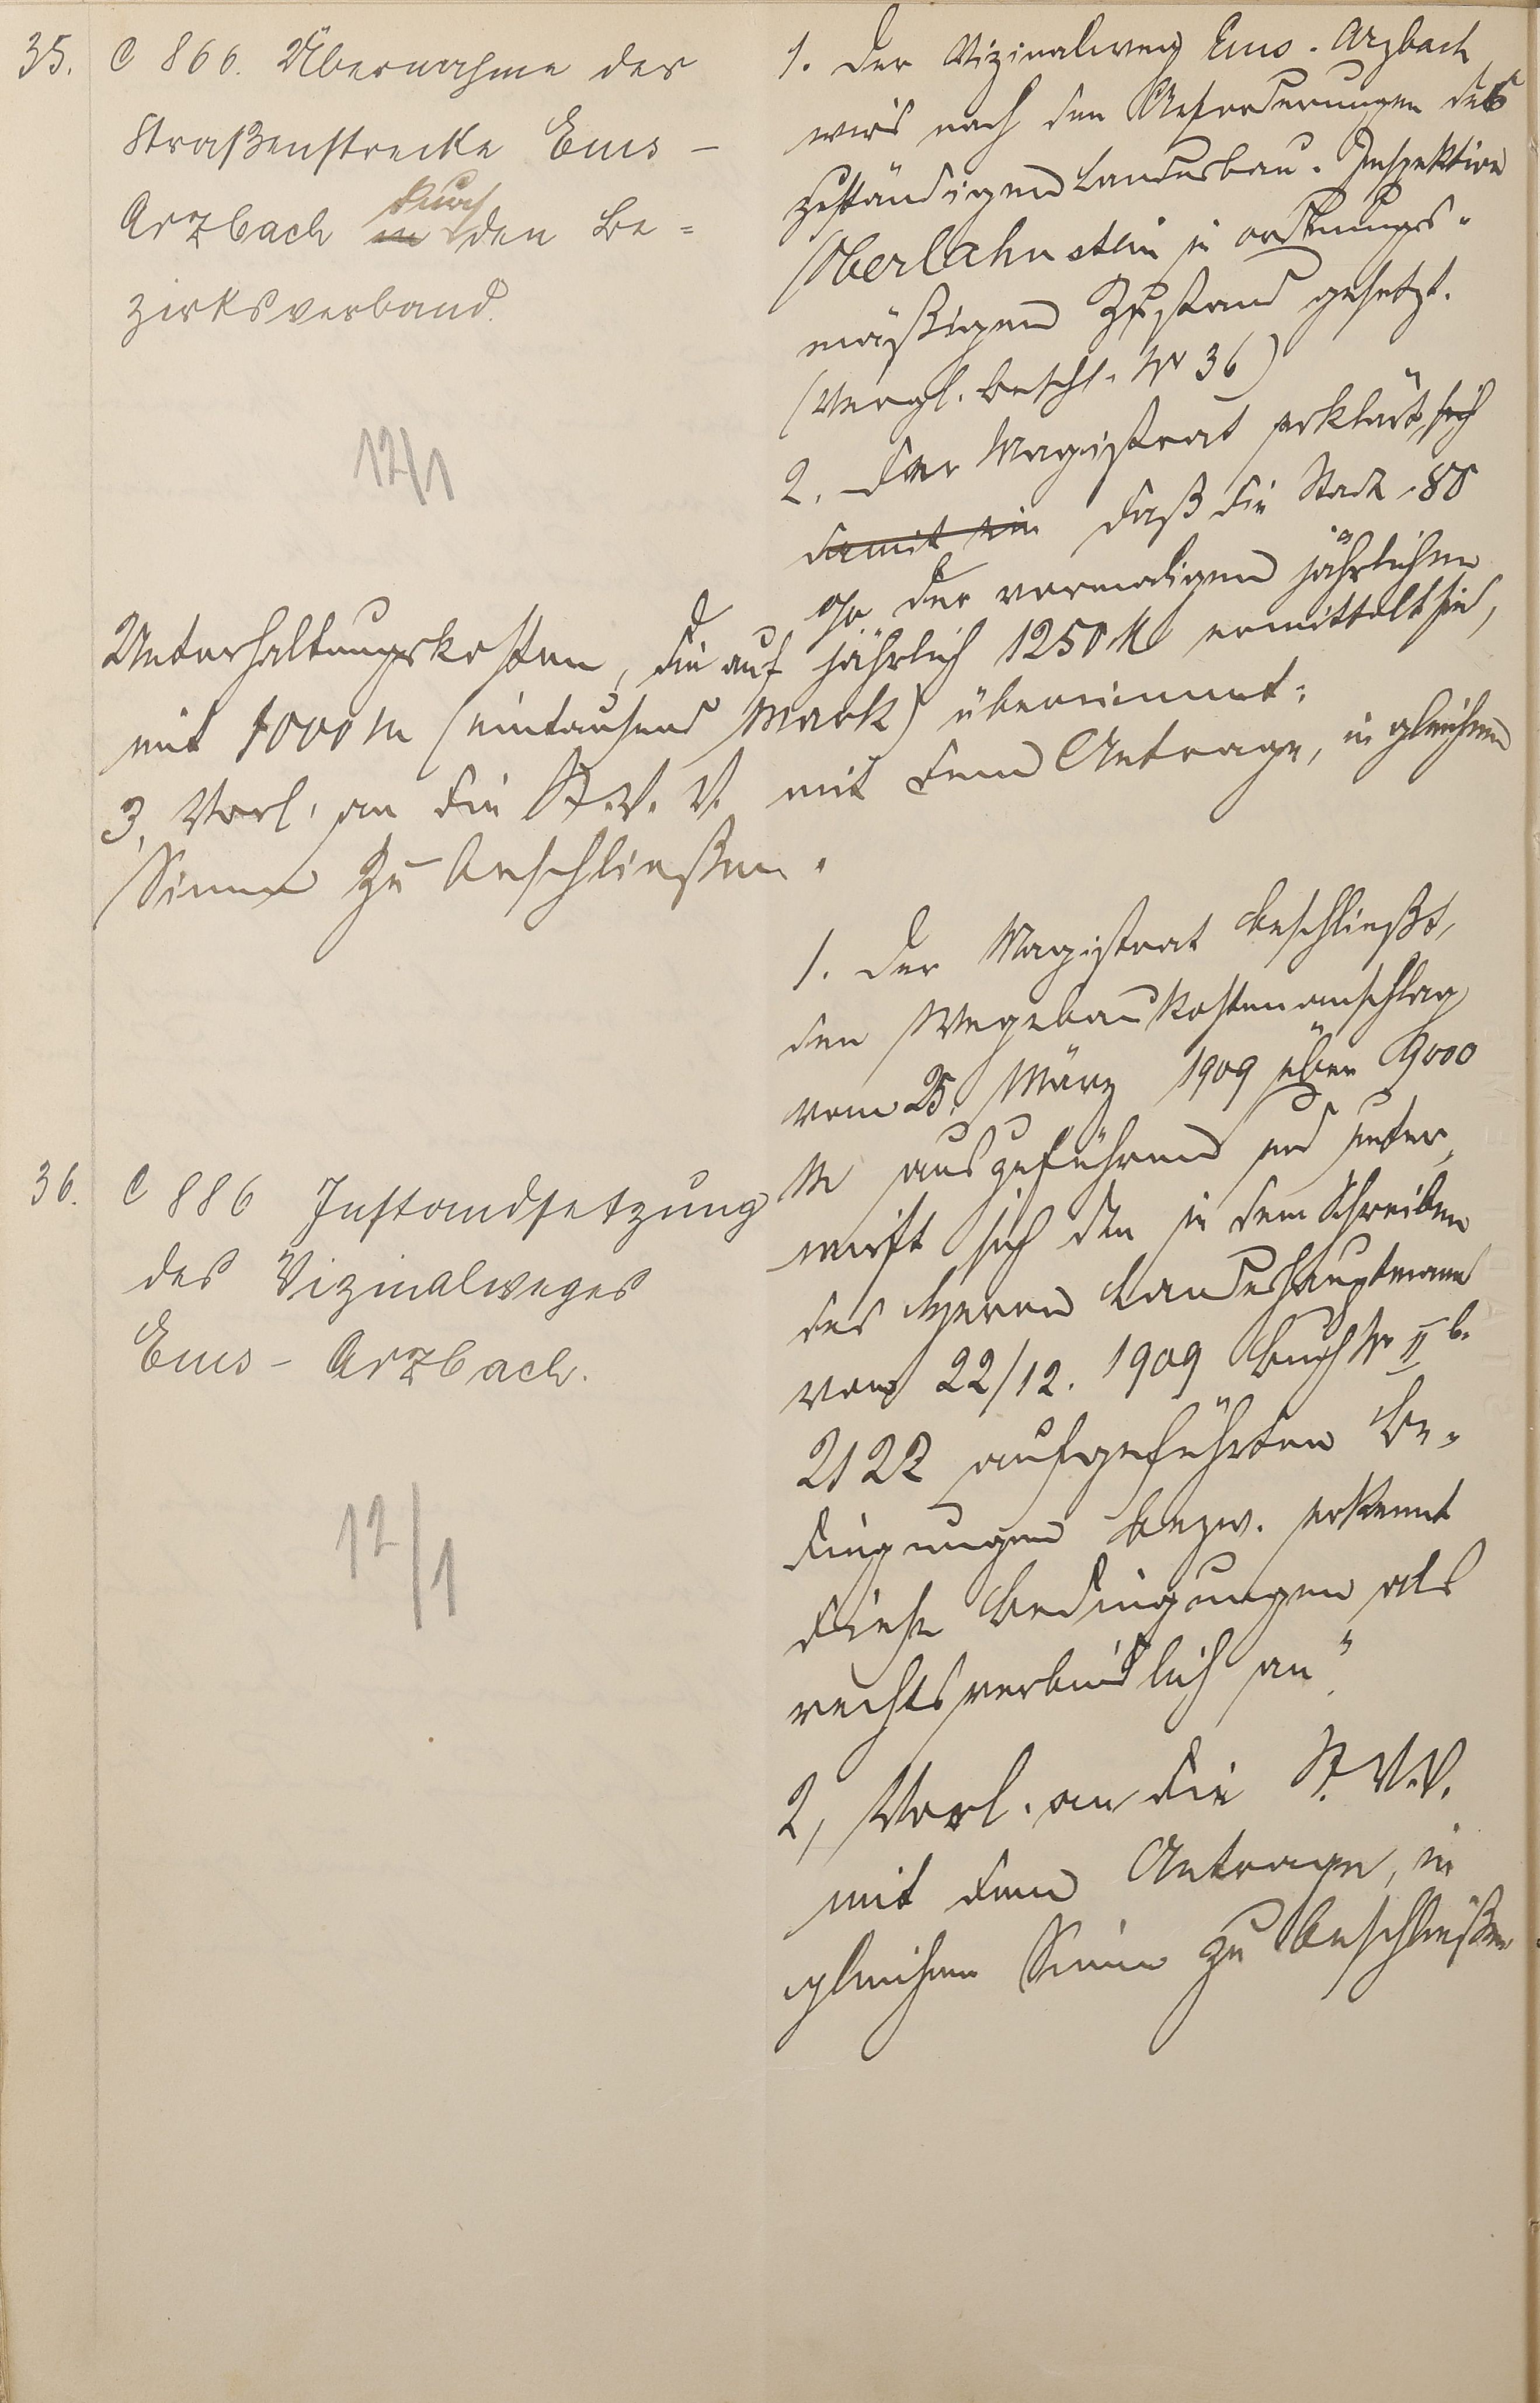 35. C 866. Übernahme der
Straßenstrecke Ems -
Arzbach in durch den Be=
zirksverband.
12/1
1. Der Vizinalweg Ems - Arzbach
wird nach den Anforderungen der
zuständigen Landesbau-Inspektion
Oberlahnstein in ordnungs-
mäßigen Zustand gesetzt.
(Vergl. Beschl. Nr 36)
2. Der Magistrat erklärt sich
damit ein daß die Stadt 80
% der vormaligen jährlichen
Unterhaltungskosten, die auf jährlich 1250 M ermittelt sind,
mit 1000 M (eintausend Mark) übernimmt.
3, Vorl. an die St. V. V. mit dem Antrage, in gleichem
Sinne zu beschließen.
36. C 886 Instandsetzung
des Vizinalweges
Ems - Arzbach.
12/1
1. Der Magistrat beschließt,
den Wegebaukostenanschlag
vom 25. März 1909 über 9000
M auszuführen und unter-
wirft sich den in dem Schreiben
des Herrn Landeshauptmann
vom 22/12. 1909 Buch Nr II b.
2122 aufgeführten Be-
dingungen bezw. erkennt
diese Bedingungen als
rechtsverbindlich an".
2, Vorl. an die St. V. V.
mit dem Antrage, in
gleichem Sinne zu beschließen